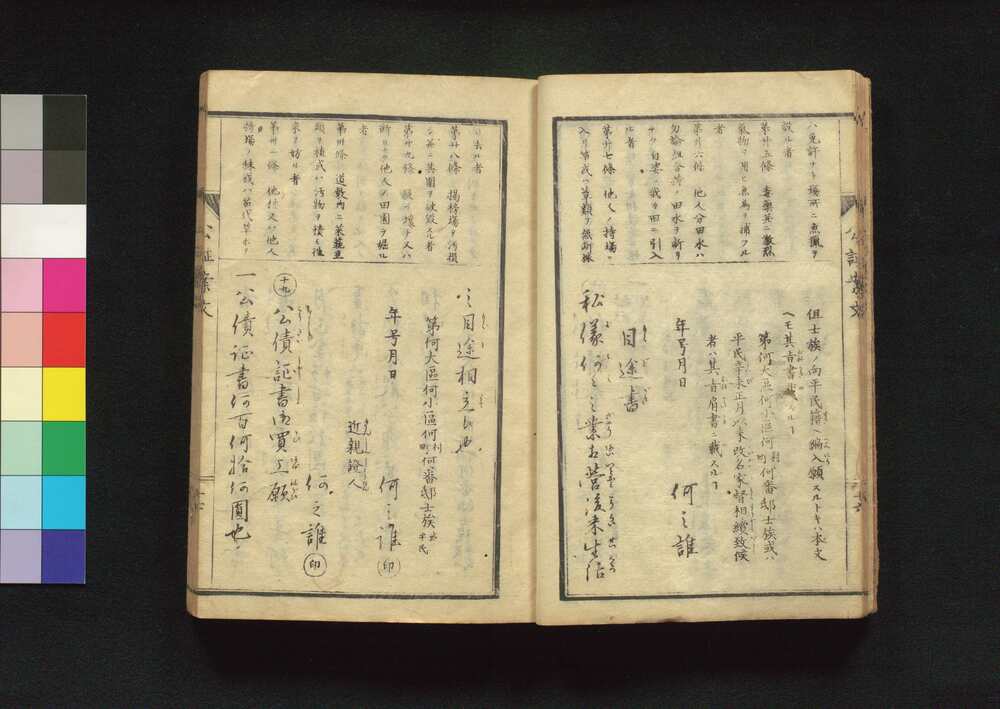 ハ免許ナキ場所ニ魚鳳ヲ
設ル者
第廿五條 毒藥并ニ激烈
氣物ヲ用ヒ魚鳥ヲ捕フル
者
第廿六條 他人分田水ハ
勿論組合持ノ田水ヲ断リ
ナク自妄ニ我カ田ニ引入
ル者
第廿七條 他人ノ持場ニ
入リ筍或ハ草類ヲ無断採
但士族ノ向平民籍ヘ編入願スルトキハ本文
ヘ王其古書載スル丁
第何大區何小區何村町何番邸士族或ハ
平民辛未正月以来改名家督相續致候
者ハ其肩書ヘ載スル丁
年号月日 何之誰
目途書
私儀何之業相營後来生活
リ去ル者
第廿八條 掲榜場ヲ汚損
シ并ニ其圍ヲ破毀スル者
第廿九條 堤ヲ壊チ又ハ
断リナク他人ノ田園ヲ掘ル
者
第卅條 道敷内ニ菜蔬豆
類ヲ植或ハ汚物ヲ積ミ往
来ヲ妨ル者
第卅一條 他村又ハ他人
持場ノ秣或ハ苗代草ホヲ
之目途相立候也
第何大區何小區何村町何番邸士族或平民
年号月日 何之誰 印
近親證人
何之誰 印
十九 公債証書御買上願
一公債証書何百何拾何圓也
公証案文